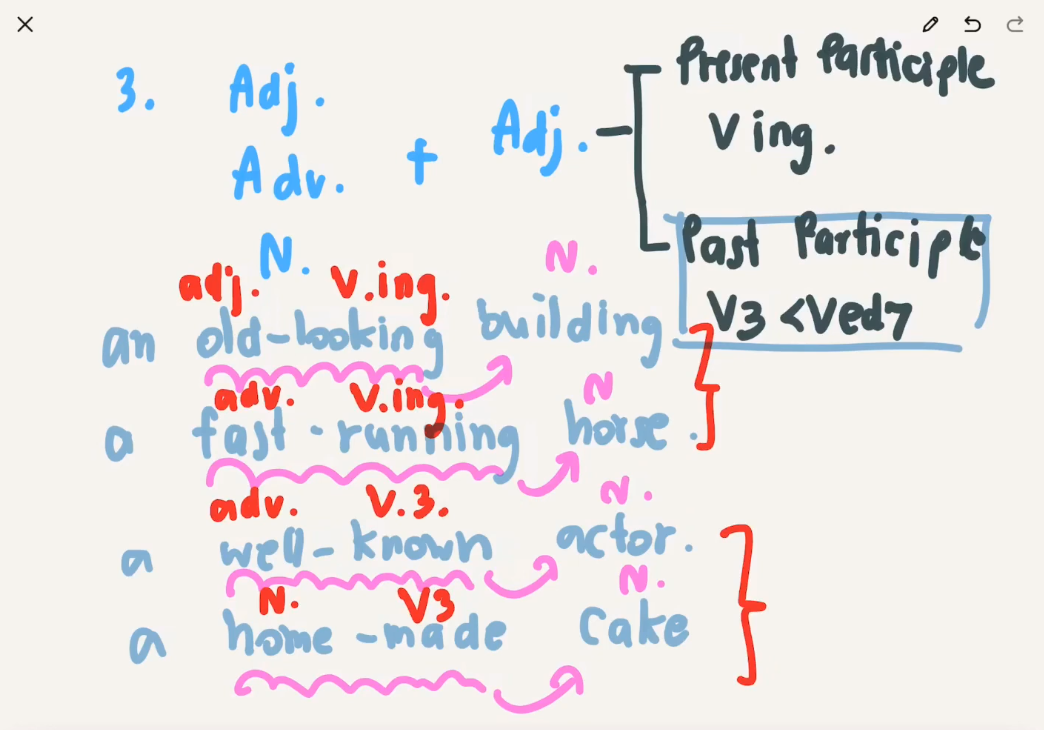 3. Adj. Present Participle
Adj. V ing.
Adv. +
Past Participle
N. N.
V3 <Ved7
adj. V.ing.
an old-looking building
adv. V.ing. N
a fast-running horse.
adv. V.3. N.
a well-known actor.
N. V3 N.
a home-made cake